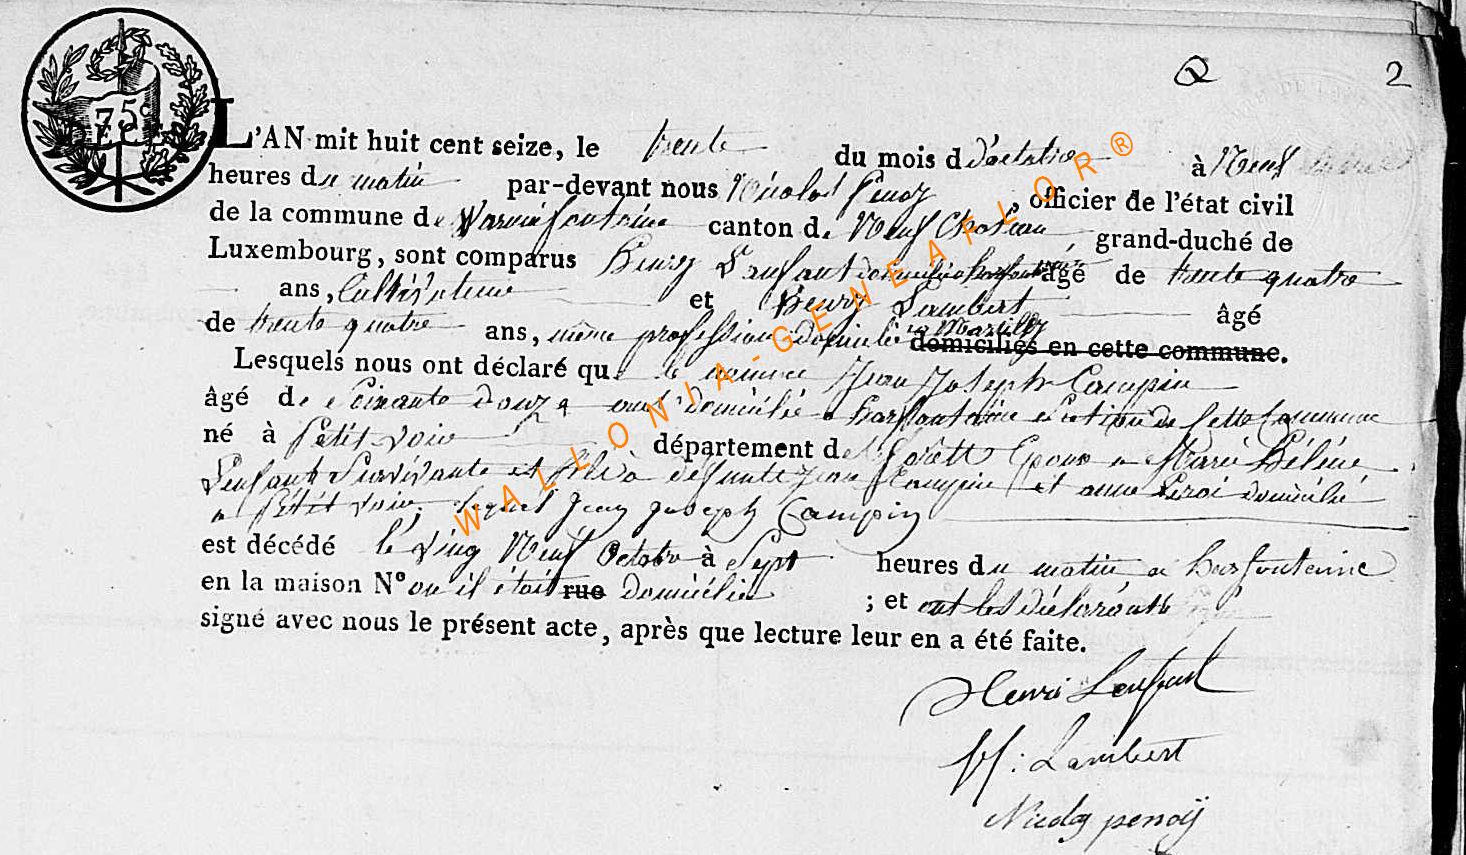 Q 2
75 c
L'AN mil huit cent seize, le trente du mois d d'octobre à Neuf
heures du matin par-devant nous Nicolas Penoy, officier de l'état civil
de la commune de Warmifontaine canton de Neuf Chateau, grand-duché de
Luxembourg, sont comparus Henry Lenfant domicilié a harfontaine âgé de trente quatre
ans, Cultivateur et Henry Lambert âgé
de trente quatre ans, même profession domicilié a domiciliés en cette commune.
Lesquels nous ont déclaré que le nommé Jean Joseph Campin
âgé de Soixante douze ans domicilié a harfontaine section de cette Commune
né à Petit voir département de forêtt Epoux a Marie Hélène
Lenfant Survivante et fils à défunts jean Campin et anne domicilié
a Petit voir. lequel jean joseph Campin
est décédé le ving Neuf Octobre à Sept heures du matin a harfontaine
en la maison N° ou il étoit rue domicilié ; et ont les déclarants
signé avec nous le présent acte, après que lecture leur en a été faite.
Henri Lenfant
H : Lambert
Nicolas penoÿ
WALLONIA-GENEAFLOR®